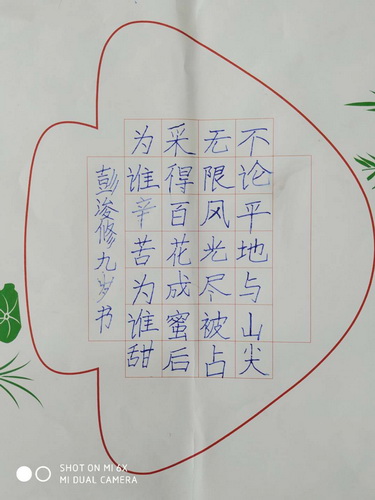 不论平地与山尖
无限风光尽被占
采得百花成蜜后
为谁辛苦为谁甜
彭浚修九岁书
SHOT ON MI 6X
MI DUAL CAMERA